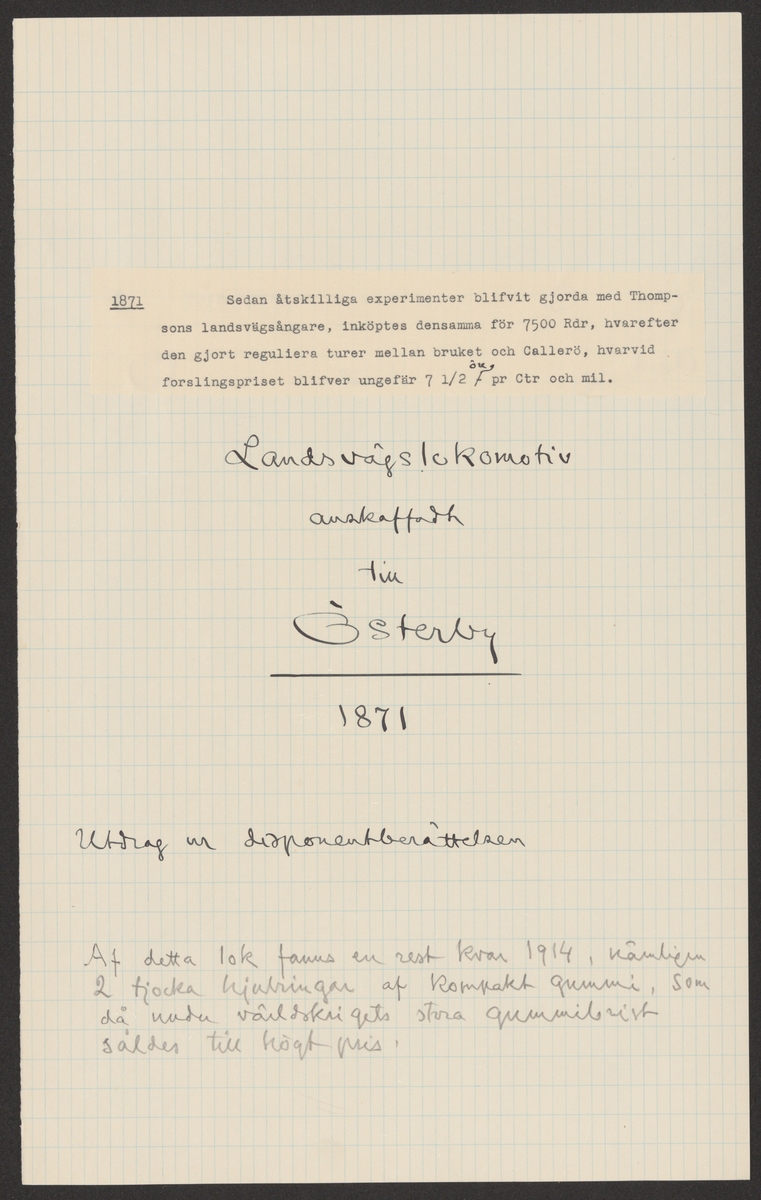 1871 Sedan åtskilliga experimenter blifvit gjorda med Thomp-
sons landsvägsångare, inköptes densamma för 7500 Rdr, hvarefter
den gjort reguliera turer mellan bruket och Callerö, hvarvid
öre
forslingspriset blifver ungefär 7 1/2 f pr Ctr och mil.
Landsvägslokomotiv
anskaffadt
till
Österby
1871
Utdrag ur disponentberättelsen
Af detta lok fanns en rest kvar 1914, nämligen
2 tjocka hjulringar af kompakt gummi, som
då under världskrigets stora gummibrist
såldes till högt pris.